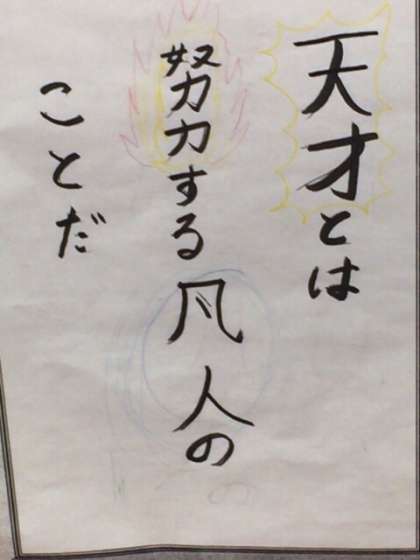 天才とは
努力する凡人の
ことだ